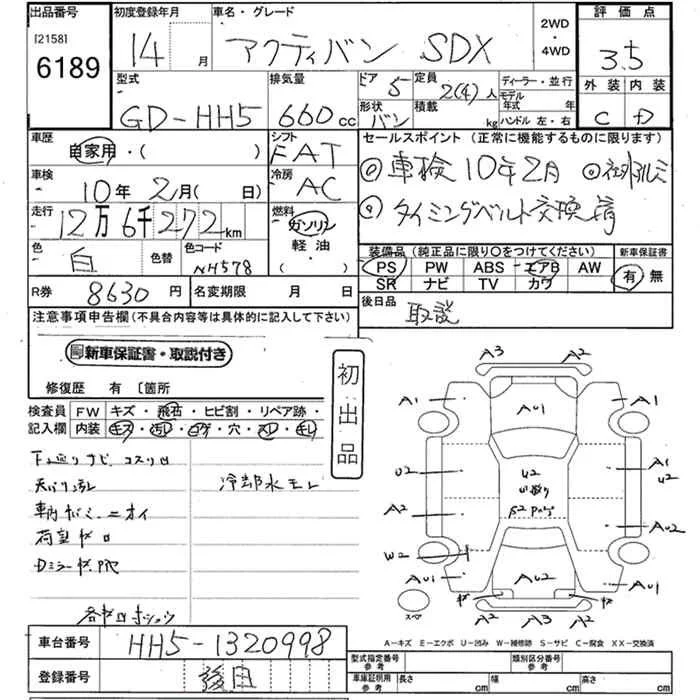 出品番号 初度登録年月 車名・グレード 評価点
[2158] 6189
14 月 アクティバン SDX 2WD・4WD 3.5
外装 内装
C D
型式 GD-HH5
排気量 660 cc
ドア 5 定員 2(4)人 ディーラー・並行
モデル年式 年
形状 バン 積載 kg ハンドル 左・右
車歴 自家用・( )
シフト FAT
セールスポイント (正常に機能するものに限ります)
車検 10年2月 社外アルミ
タイミングベルト交換済
車検 10年 2月( 日)
冷房 AC
走行 12万6千272 km
燃料 ガソリン 軽油 ( )
色 白 色替 色コード NH578
装備品 (純正品に限り○をつけてください) 新車保証書
PS PW ABS エアB AW 有 無
SR ナビ TV カワ
R券 8630円 名変期限 月 日
後日品 取説
注意事項申告欄(不具合内容等は具体的に記入して下さい)
新車保証書・取説付き
修復歴 有 〔箇所
初出品
検査員記入欄 FW キズ・飛石・ヒビ割・リペア跡・
内装
冷却水モレ
車台番号 HH5-1320998
登録番号 後日
A3 A2
A1 AU1 A1
U2 U2 A1 U2
A2 AU2
W2
AU1 AU2 AU1
スペア A2 A3 A2
A-キズ E-エクボ U-凹み W-補修跡 S-サビ C-腐食 XX-交換済
型式指定番号 参考 類別区分番号 参考
車庫証明用 参考 長さ cm 幅 cm 高さ cm